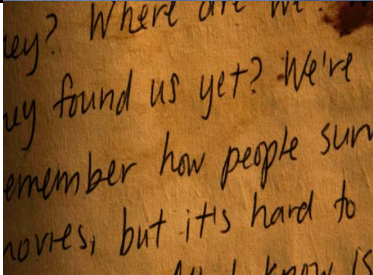 ey? Where are we?
ey found us yet? We're
emember how people sur
ovies, but it's hard to
know is